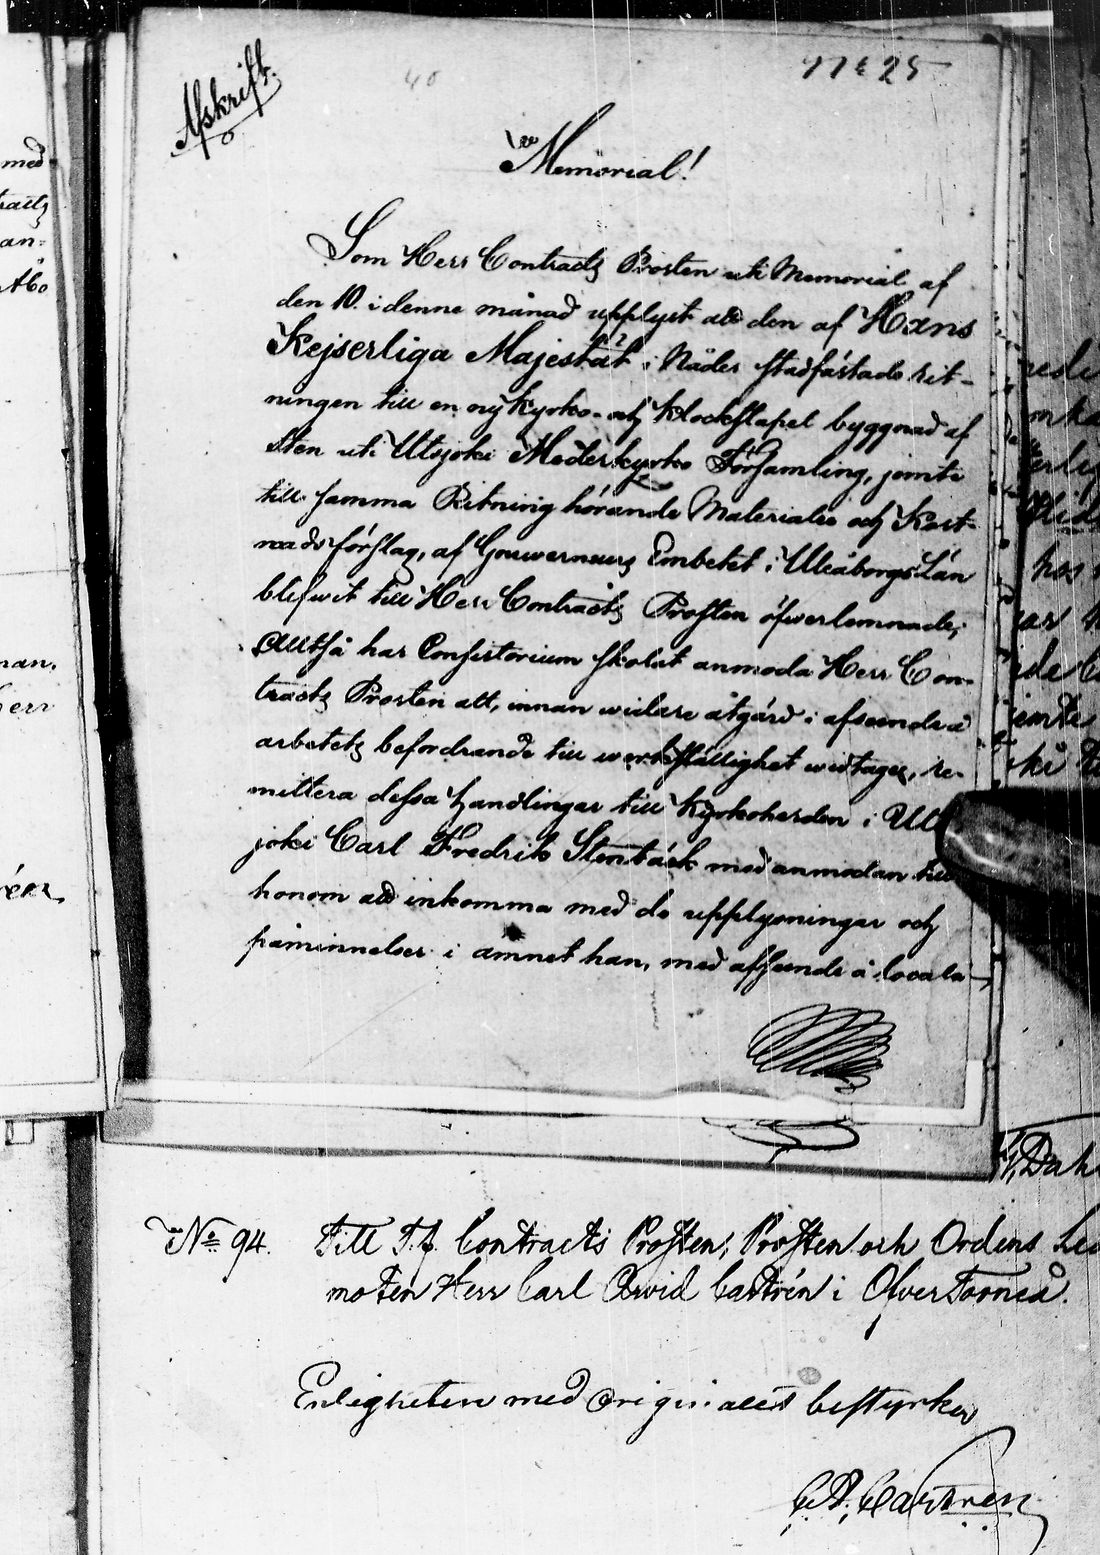 Afskrift.
40
Memorial!
Som Herr Contracts Prosten uti Memorial af
den 10. i denne månad upplyst att den af Hans
Kejserliga Majestät i Nåder stadfästade rit-
ningen till en ny Kyrko- och Klockstapel byggnad af
Sten uti Utsjoki Moderkyrko Församling, jemte
till samma Ritning hörande Materialie och Kost-
nadsförslag, af Gouverneurs Embetet i Uleåborgs Län
blifwit till Herr Contracts Prosten öfwerlemnade;
Alltså har Consistorium skolat anmoda Herr Con-
tracts Prosten att, innan widare åtgärd i afseende å
arbetets befordrande till werkställighet widtages, re-
mittera dessa handlingar till Kyrkoherden i Uts
joki Carl Fredrik Stenbäck med anmodan till
honom att inkomma med de upplysningar och
påminnelser i ämnet han, med afseende å locala
No 94. Till T. f. Contracts Prosten, Prosten och Ordens Led
moten Herr Carl Arvid Castrén i Öfver Torneå.
Enligheten med originalet bestyrker
C. A. Castrén
med
an-
Åbo
man,
Herr